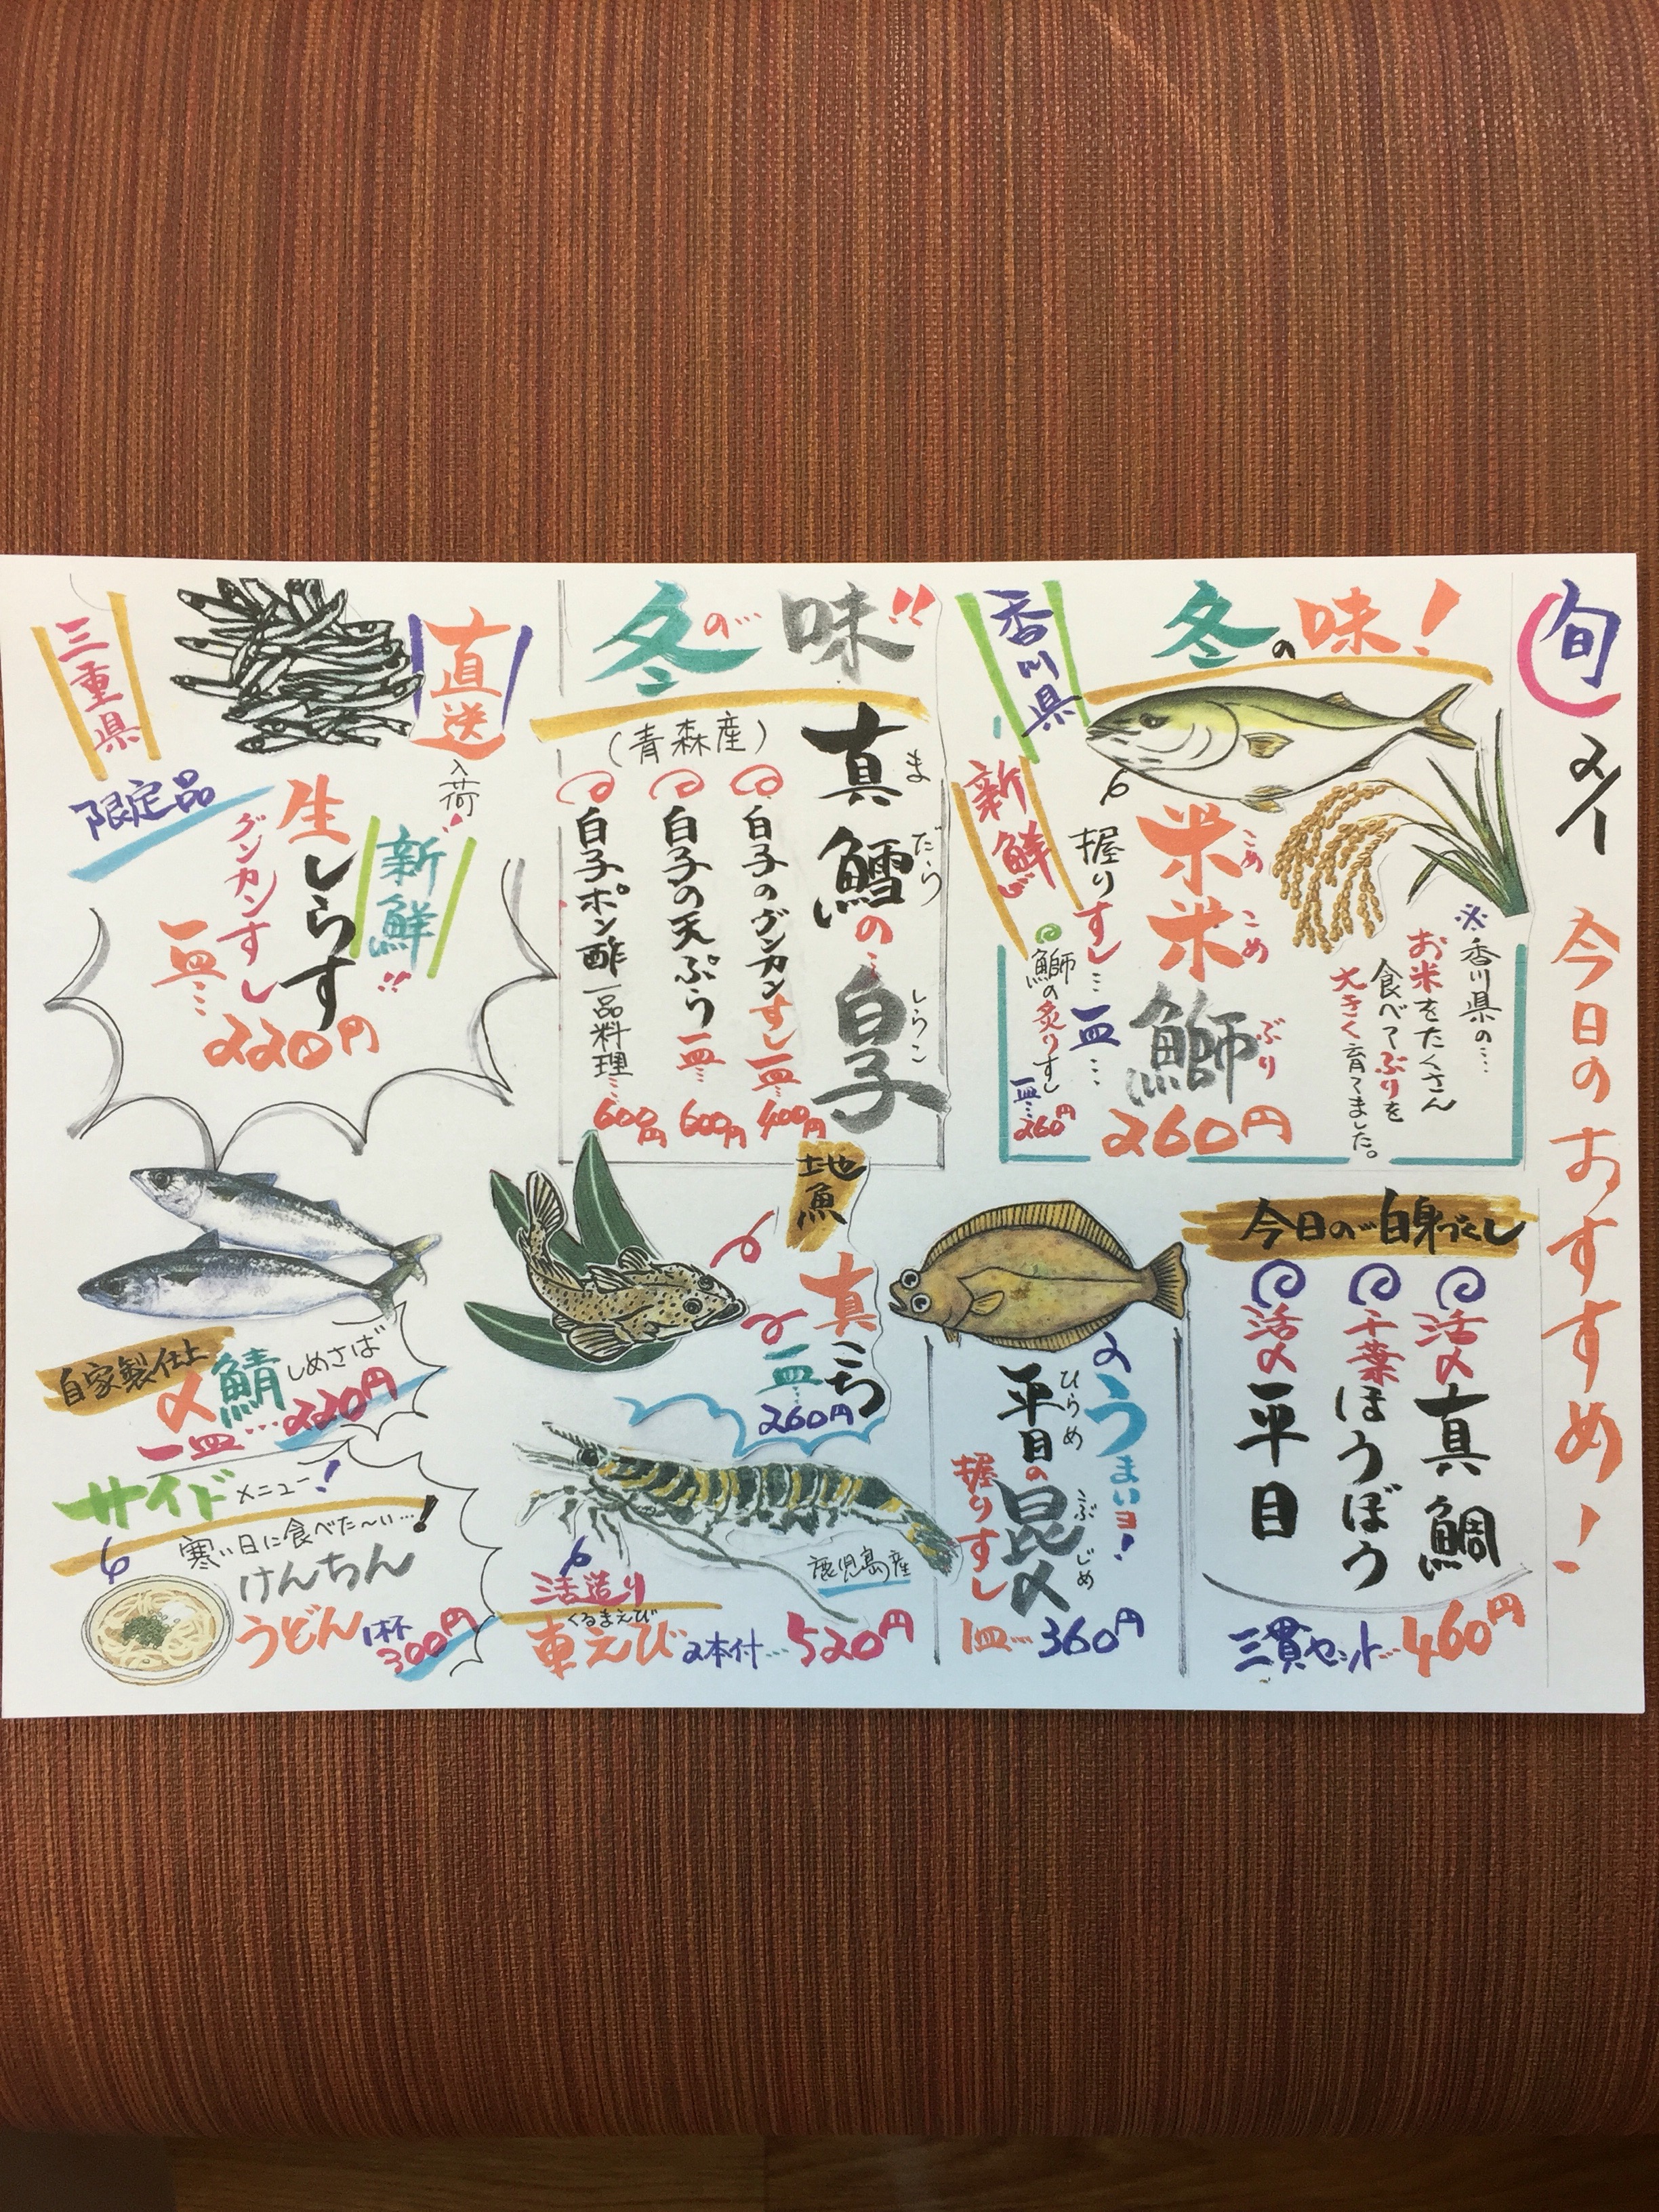 旬
2/1
今日のおすすめ!
香川県
冬の味!
新鮮
米米鰤
こめ
こめ
ぶり
握りすし…一皿…
260円
鰤の炙りすし
一皿…260円
※香川県の…
お米をたくさん
食べてぶりを
大きく育てました。
冬の味!!
真鱈の白子
まだら
しらこ
(青森産)
白子のグンカンすし一皿…400円
白子の天ぷら一皿…600円
白子ポン酢一品料理…600円
三重県
直送
入荷!
限定品
新鮮!!
生しらす
グンカンすし
一皿…
220円
今日の白身づくし
活〆真鯛
千葉ほうぼう
活〆平目
三貫セット…460円
うまいヨ!
平目の昆〆
ひらめ
こぶじめ
握りすし
1皿…360円
地魚
真こち
一皿…
260円
鹿児島産
活造り
くるまえび
車えび2本付…520円
自家製仕上
〆鯖しめさば
一皿…220円
サイドメニュー!
寒い日に食べた〜い…!
けんちん
うどん1杯
300円